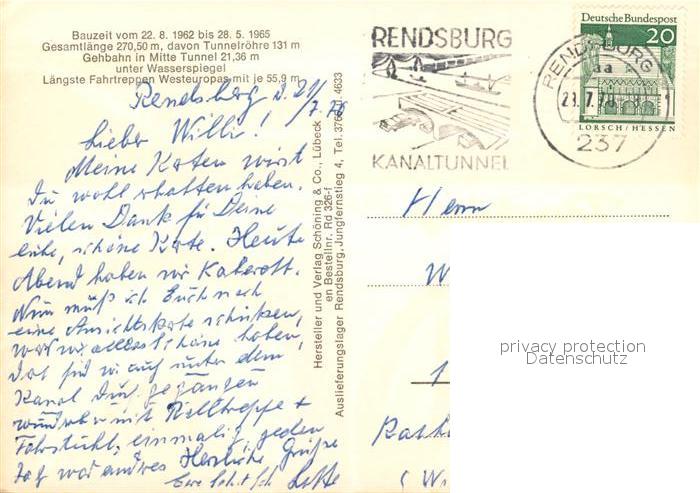 Bauzeit vom 22. 8. 1962 bis 28. 5. 1965
Gesamtlänge 270,50 m, davon Tunnelröhre 131 m
Gehbahn in Mitte Tunnel 21,36 m
unter Wasserspiegel
Längste Fahrtreppen Westeuropas mit je 55,9 m
Rendsberg d. 21/7. 70
Lieber Willi!
Meine Karten wirst
Du wohl erhalten haben.
Vielen Dank für Deine
liebe, schöne Karte. Heute
Abend haben wir
Nun muß ich Euch noch
eine Ansichtskarte schicken,
was wir alles schöne haben,
Das sind wir auch unter dem
Kanal durch gegangen
mit Rolltreppe +
Fahrstuhl, einmalig, jeden
Tag was andres Herzliche Grüße
Lotte
Hersteller und Verlag Schöning & Co., Lübeck
en Bestellnr. Rd 326-f
Auslieferungslager Rendsburg, Jungfernstieg 4, Tel. 4633
RENDSBURG
KANALTUNNEL
Deutsche Bundespost
20
LORSCH/HESSEN
RENDSBURG
aa
21.7.70
237
Herrn
W
1
(W
privacy protection
Datenschutz